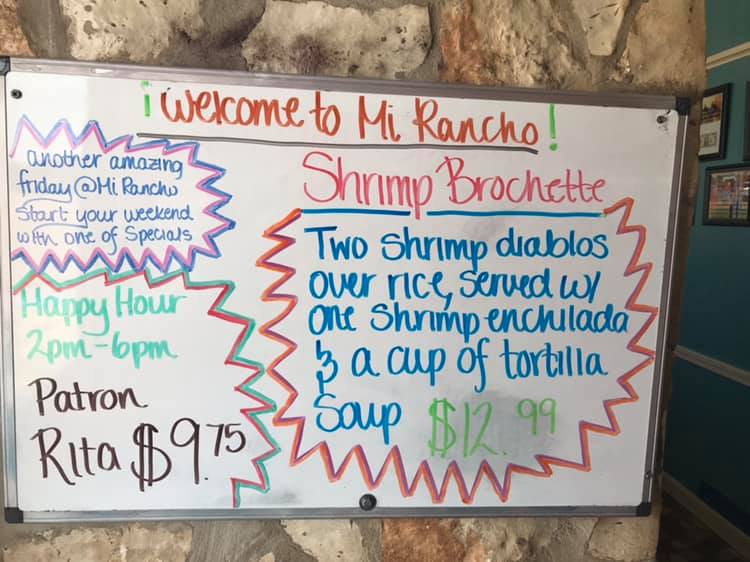 ¡Welcome to Mi Rancho!
another amazing
friday @ Mi Rancho
Start your weekend
with one of Specials
Happy Hour
2pm-6pm
Patron
Rita $9.75
Shrimp Brochette
Two shrimp diablos
over rice, served w/
one Shrimp enchilada
& a cup of tortilla
Soup $12.99